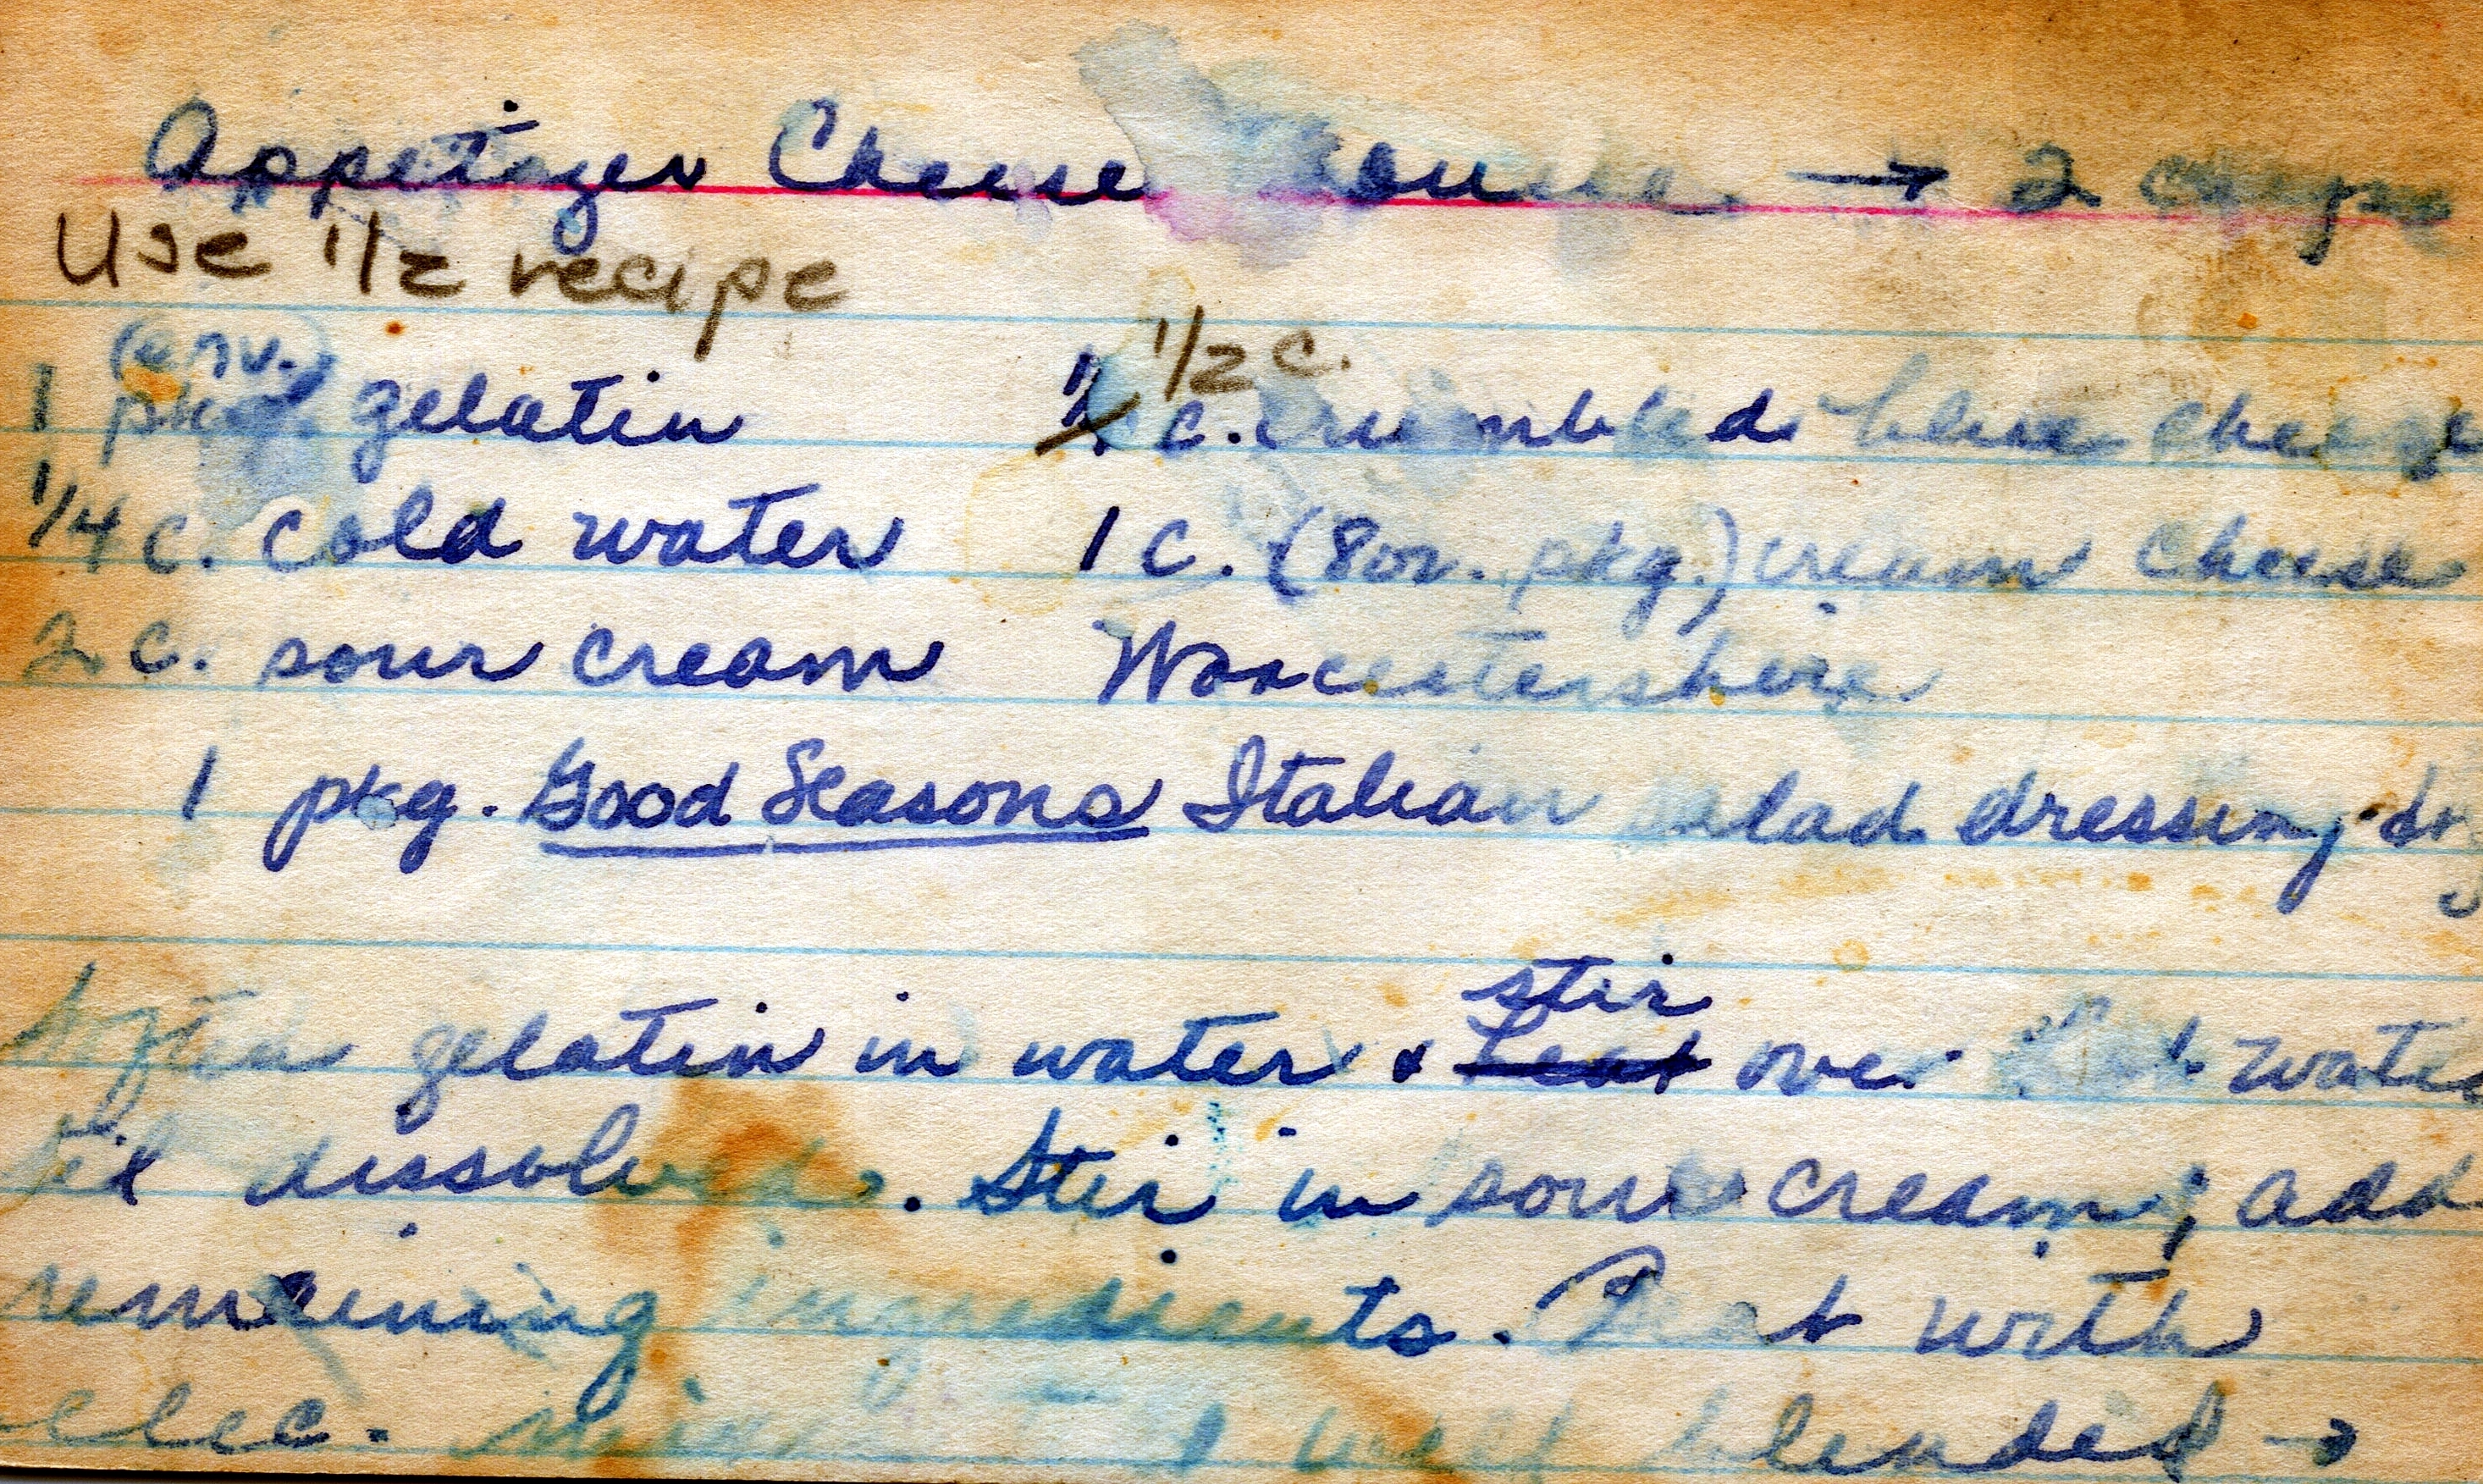 Appetizer Cheese → 2 cups
Use 1/2 recipe
(env.) 1/2 c.
1 pkg gelatin c. crumbled blue cheese
1/4 c. cold water 1 c. (8 oz. pkg.) cream cheese
2 c. sour cream Worcestershire
1 pkg. Good Seasons Italian salad dressing-dry
stir
Soften gelatin in water & heat over hot water
til dissolved. Stir in sour cream; add
remaining ingredients. Beat with
elec. well blended →